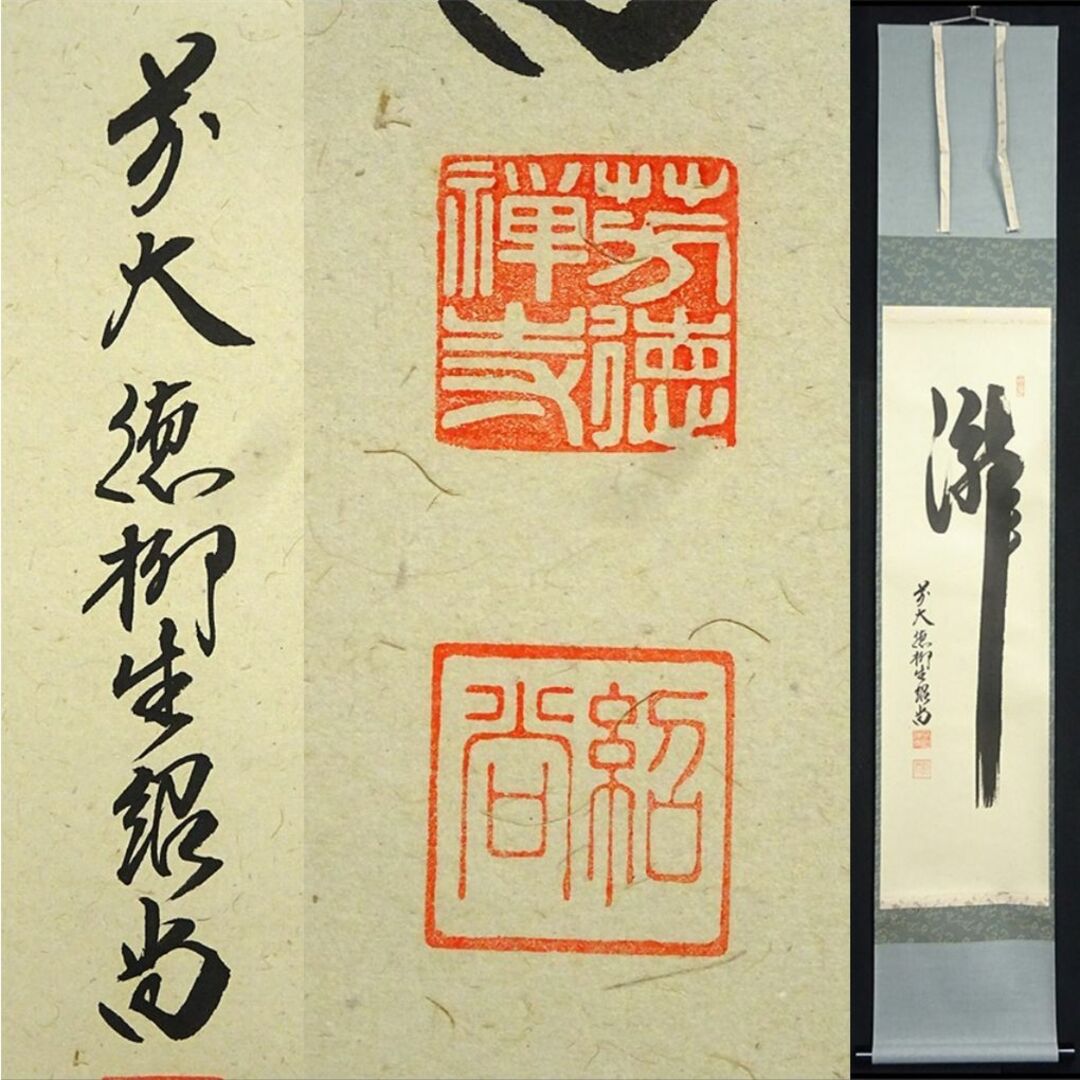 前大徳柳生紹尚
芳徳
禅寺
紹
尚
瀧
前大徳柳生紹尚